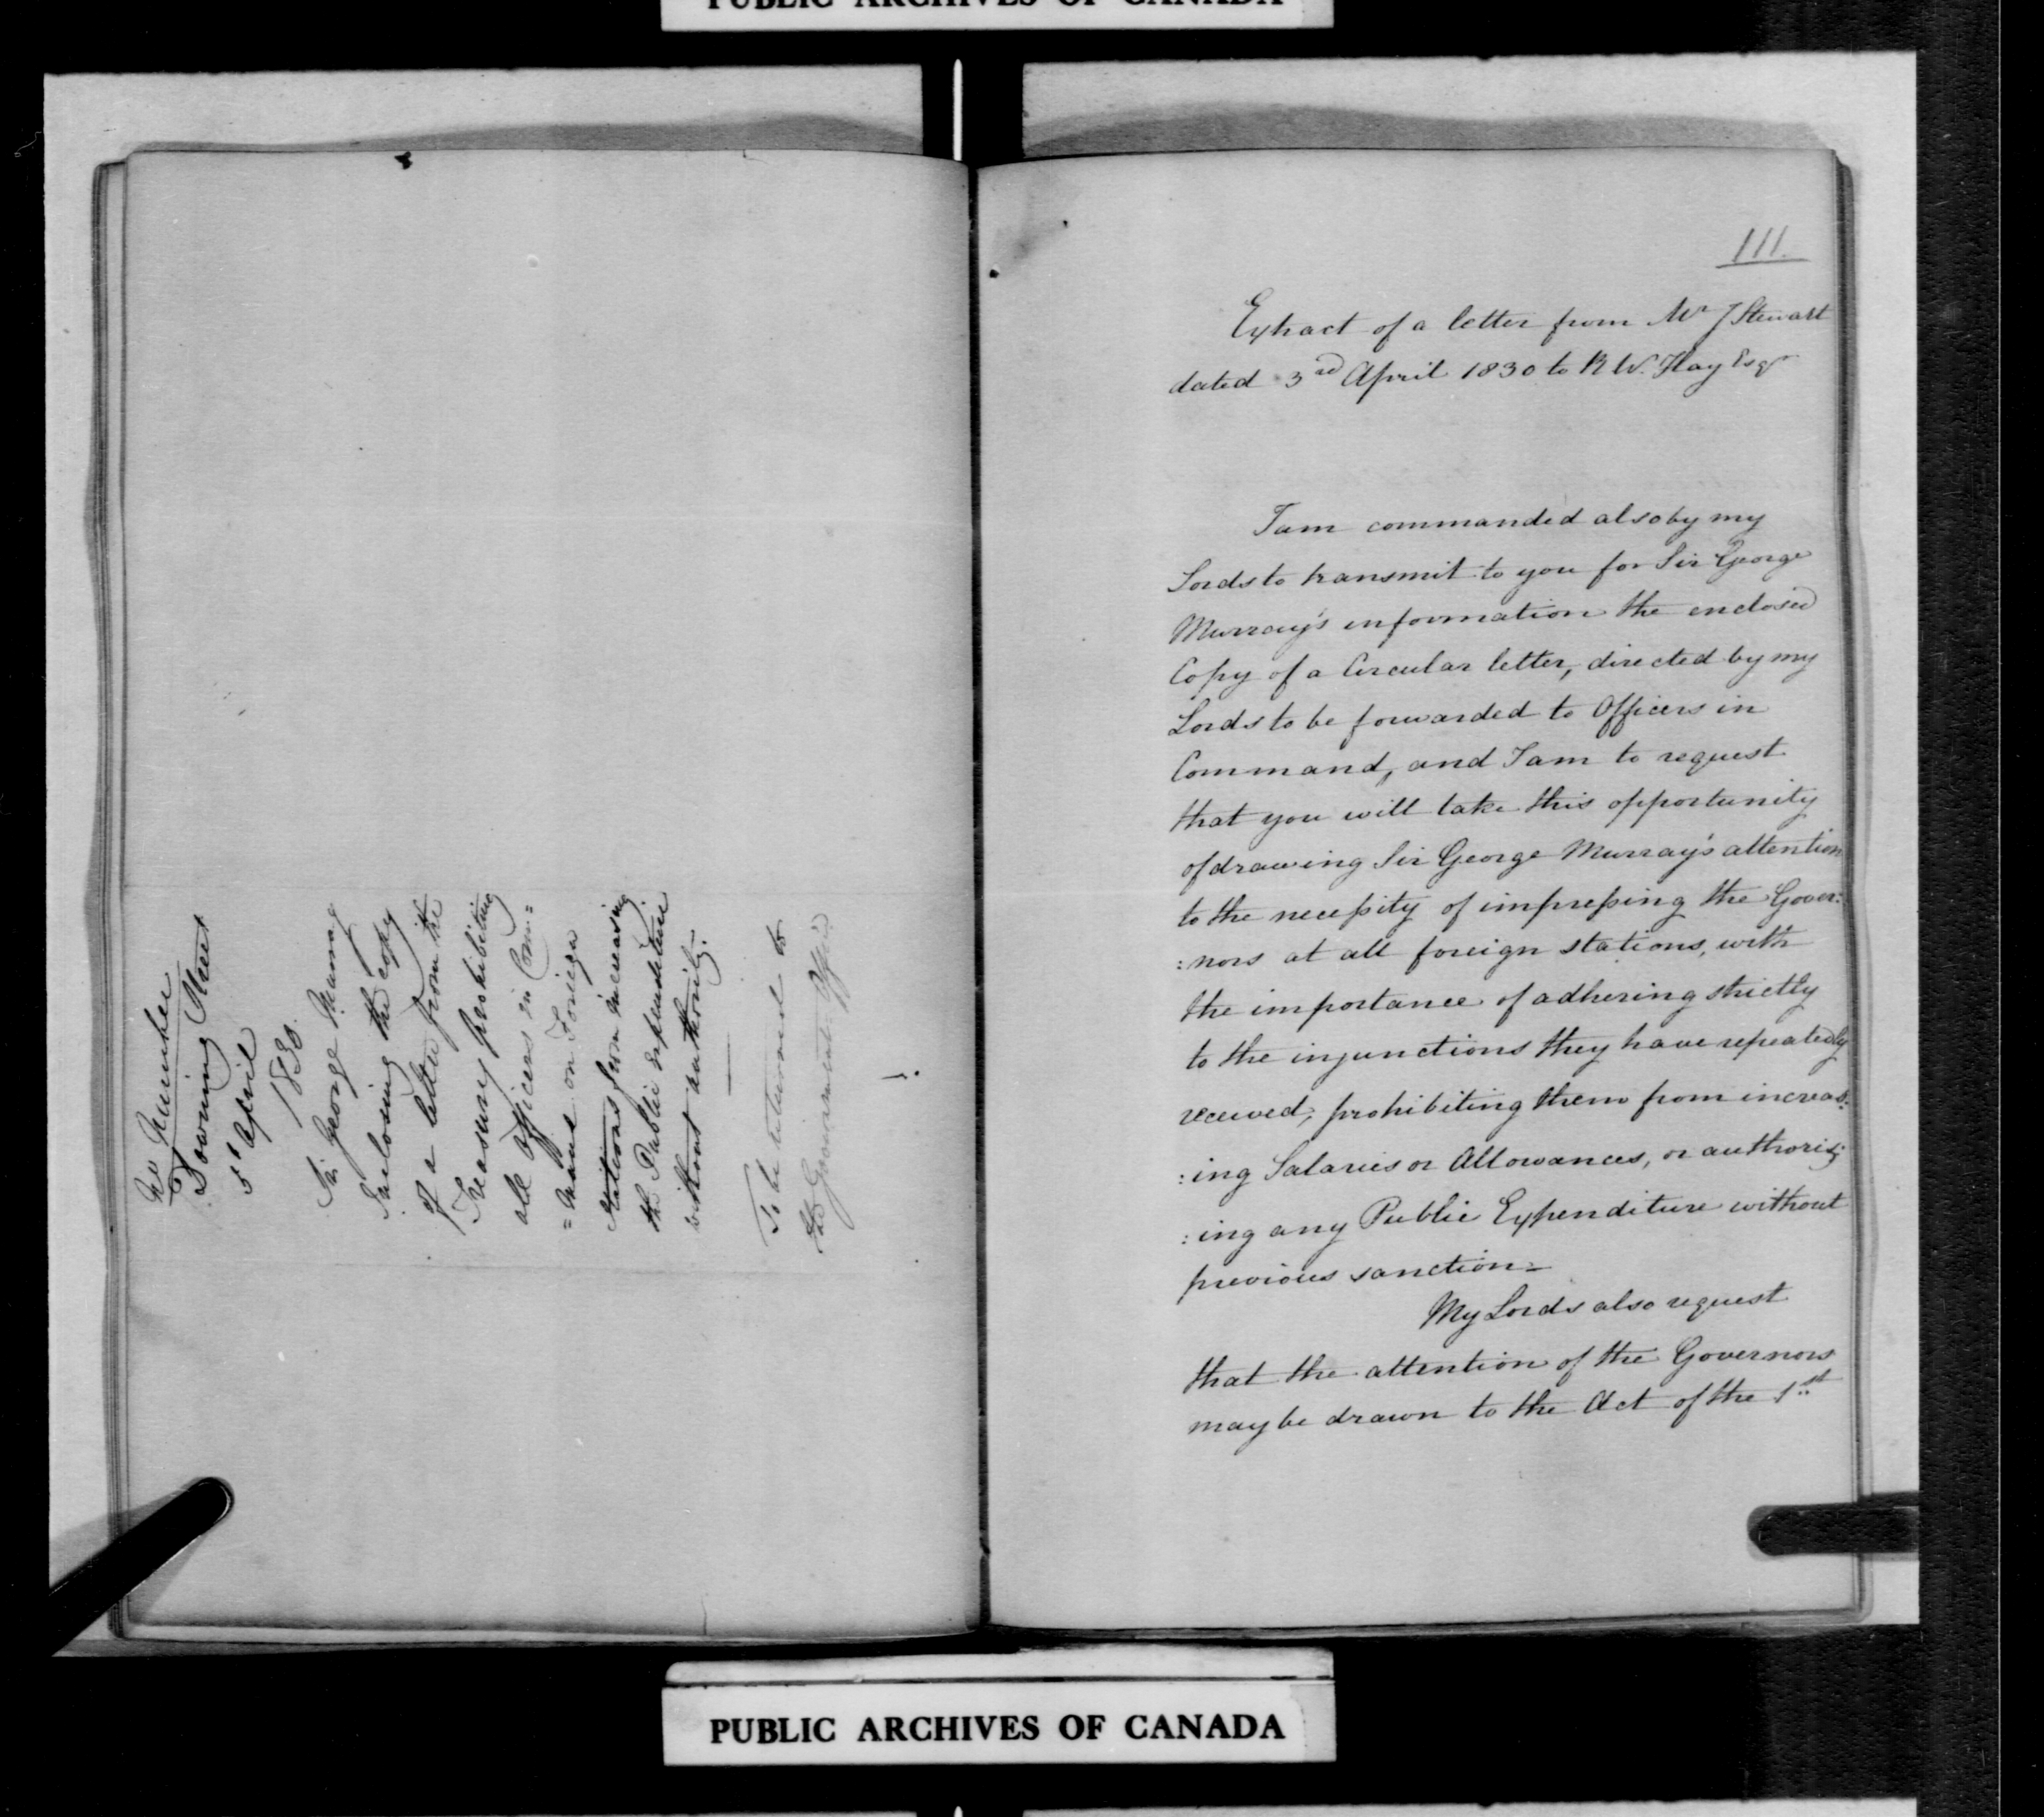 PUBLIC ARCHIVES OF CANADA
No Number
Downing Street
5th April
1830.
Sir George Murray
Inclosing the copy
of a letter from the
Treasury prohibiting
all officers in Com=
=mand on Foreign
Stations from increasing
the Public expenditure
without authority.
To be returned to
the Government Office
111.
Extract of a letter from Mr J Stewart
dated 3rd April 1830 to R W. Hay Esqr
I am commanded also by my
Lords to transmit to you for Sir George
Murray's information the enclosed
Copy of a Circular letter, directed by my
Lords to be forwarded to Officers in
Command, and I am to request
that you will take this opportunity
of drawing Sir George Murray's attention
to the necessity of impressing the Gover:
:nors at all foreign stations, with
the importance of adhering strictly
to the injunctions they have repeatedly
received, prohibiting them from increas:
:ing Salaries or Allowances, or authoris:
:ing any Public Expenditure without
previous sanction_
My Lords also request
that the attention of the Governors
may be drawn to the Act of the 1st
PUBLIC ARCHIVES OF CANADA